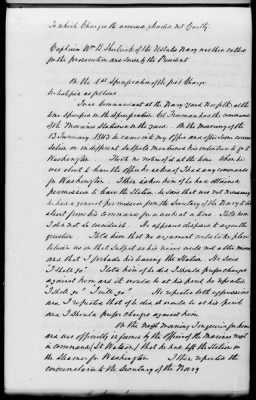 To which Charges the accused pleaded not Guilty
Captain Wm B. Shubrick of the U States Navy was then called
for the prosecution and sworn by the President
On the 1st Specification of the first Charge
he testified as follows
I was Commandant at the Navy Yard Norfolk at the
time specified in the Specification. Col Freeman had the command
of the Marines Stationed on the Yard. On the morning of the
13 January 1843 he came into my office and after some conver
sation on indifferent Subjects mentioned his intention to go to
Washington. I took no notice of it at the time. When he
was about to leave the office he asked if I had any commands
for Washington. I then asked him if he had obtained
permission to leave the Station. he said that was not necessary
he had a general permission from the Secretary of the Navy to be
absent from his command for a week at a time. I told him
I did not so consider it. He appeared disposed to argue the
question. I told him that no argument could take place
between us on that Subject as his views could not alter mine
and that I forbade his leaving the Station. He said
"I shall go." I told him if he did I should prefer charges
against him and it would be at his peril he repeated
"I shall go" "I will go." He repeated both expressions
and I repeated that if he did it would be at his peril
and I should prefer charges against him.
On the next morning I enquired for him
and was officially informed by the Officer of the Marines next
in command (Lt Watson) that he had left the Station in
the Steamer for Washington I then reported the
circumstance to the Secretary of the Navy